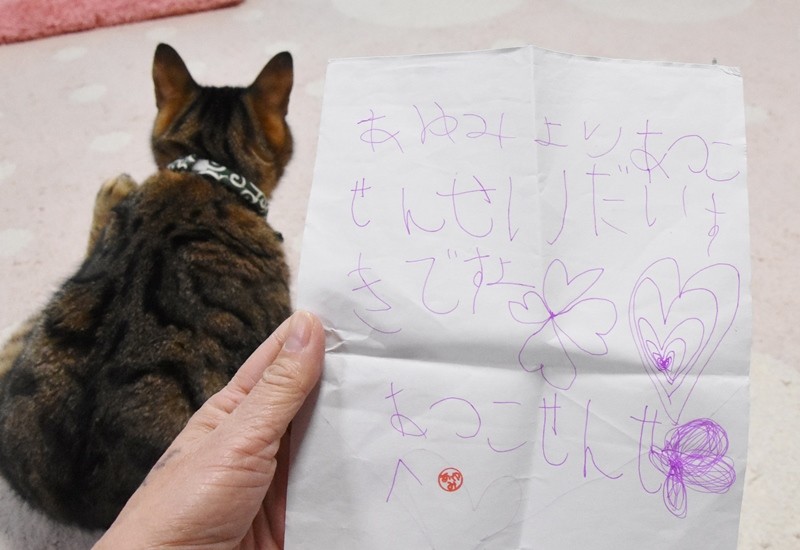 あゆみよりあつこ
せんせいだいす
きですよ
あつこせんせ
へ